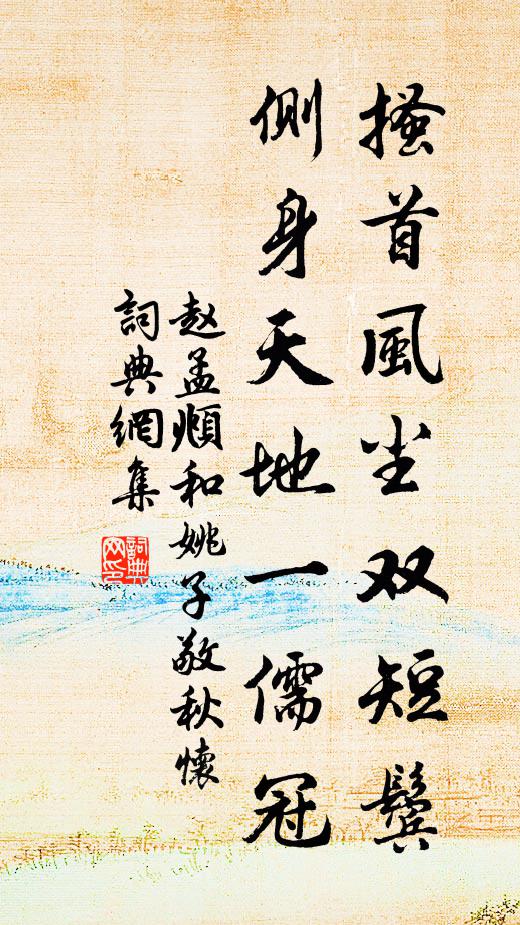 搔首風尘双短鬓
侧身天地一儒冠
赵孟頫和姚子敬秋懷
詞典網集
詞典网印